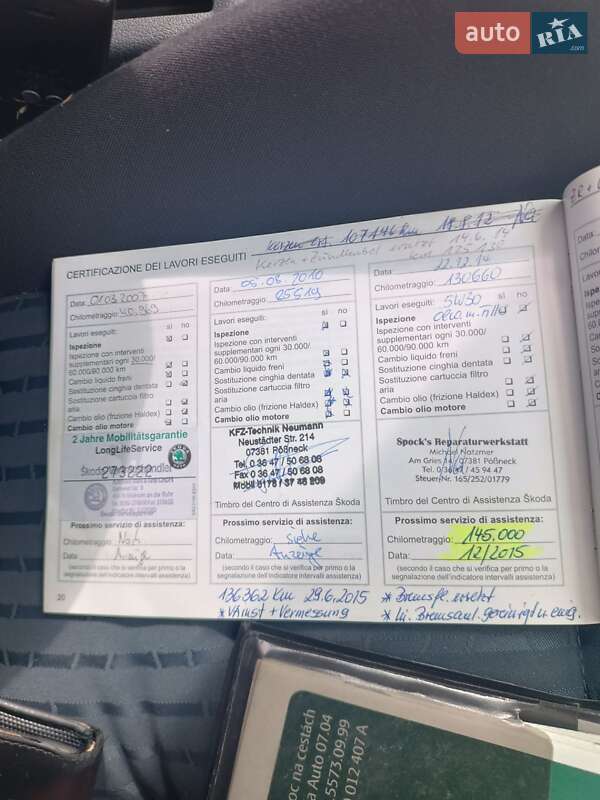 auto RIA .com
Kerzen ers. 107146 Km 19.8.12
Kerzen + Zündkabel ersetzt 14.6.14
Km 125 230
CERTIFICAZIONE DEI LAVORI ESEGUITI
Data 01.03.2007
Chilometraggio 40.969
Lavori eseguiti: sì no
Ispezione
Ispezione con interventi
supplementari ogni 30.000/
60.000/90.000 km
Cambio liquido freni
Sostituzione cinghia dentata
Sostituzione cartuccia filtro
aria
Cambio olio (frizione Haldex)
Cambio olio motore
2 Jahre Mobilitätsgarantie
LongLifeService
273222
Prossimo servizio di assistenza:
Chilometraggio:
Data:
(secondo il caso che si verifica per primo o la
segnalazione dell'indicatore intervalli assistenza)
20
Data 05.08.2010
Chilometraggio 85519
Lavori eseguiti: sì no
Ispezione
Ispezione con interventi
supplementari ogni 30.000/
60.000/90.000 km
Cambio liquido freni
Sostituzione cinghia dentata
Sostituzione cartuccia filtro
aria
Cambio olio (frizione Haldex)
Cambio olio motore
KFZ-Technik Neumann
Neustädter Str. 214
07381 Pößneck
Tel. 0 36 47 / 50 68 08
Fax 0 36 47 / 50 68 08
Mobil 0178 / 37 48 209
Timbro del Centro di Assistenza Škoda
Prossimo servizio di assistenza:
Chilometraggio: siehe
Data: Anzeige
(secondo il caso che si verifica per primo o la
segnalazione dell'indicatore intervalli assistenza)
Data 22.12.14
Chilometraggio 130660
Lavori eseguiti: 5W30 sì no
Ispezione
Ispezione con interventi
supplementari ogni 30.000/
60.000/90.000 km
Cambio liquido freni
Sostituzione cinghia dentata
Sostituzione cartuccia filtro
aria
Cambio olio (frizione Haldex)
Cambio olio motore
Spock's Reparaturwerkstatt
Michael Notzmer
Am Gries 07381 Pößneck
Tel. 0 / 45 94 47
SteuerNr. 165/252/01779
Timbro del Centro di Assistenza Škoda
Prossimo servizio di assistenza:
Chilometraggio: 145.000
Data: 12/2015
(secondo il caso che si verifica per primo o la
segnalazione dell'indicatore intervalli assistenza)
136362 Km 29.6.2015
+ Vermessung
* Bremsfl. ersetzt
oc na cestách
a Auto 07.04
.5573.09.99
012 407 A